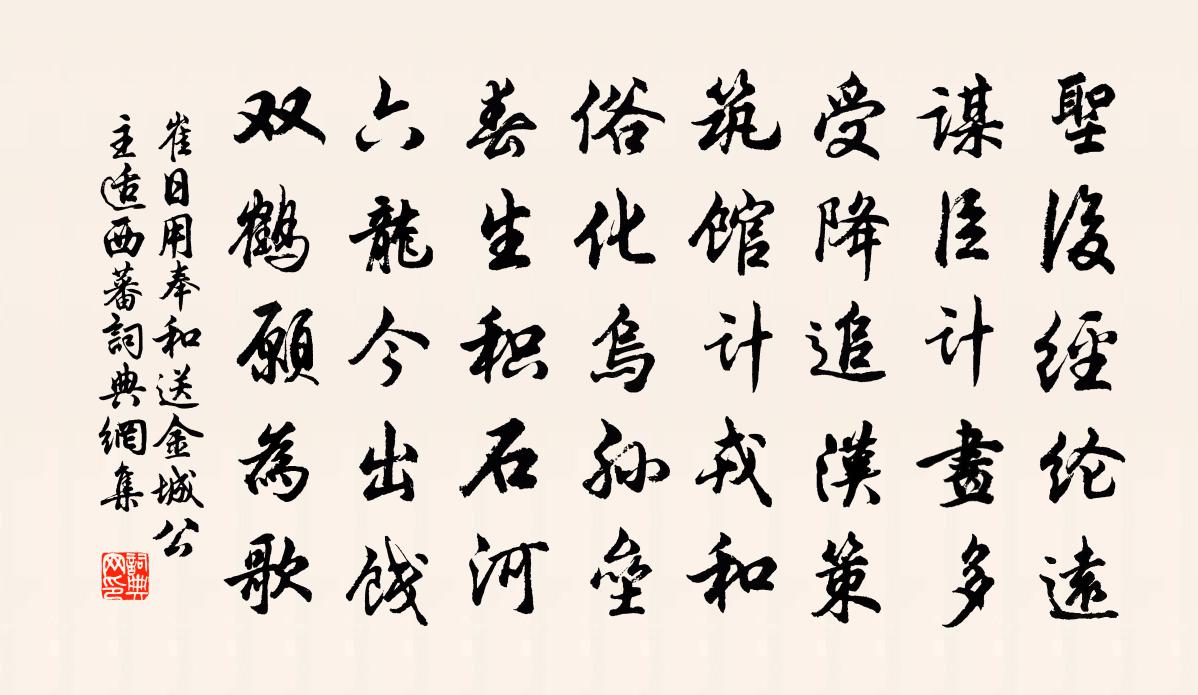 聖後經纶遠
謀臣計畫多
受降追漢策
筑馆計戎和
俗化烏孙垒
春生积石河
六龍今出饯
双鶴願為歌
崔日用奉和送金城公
主适西蕃詞典網集
詞典网印